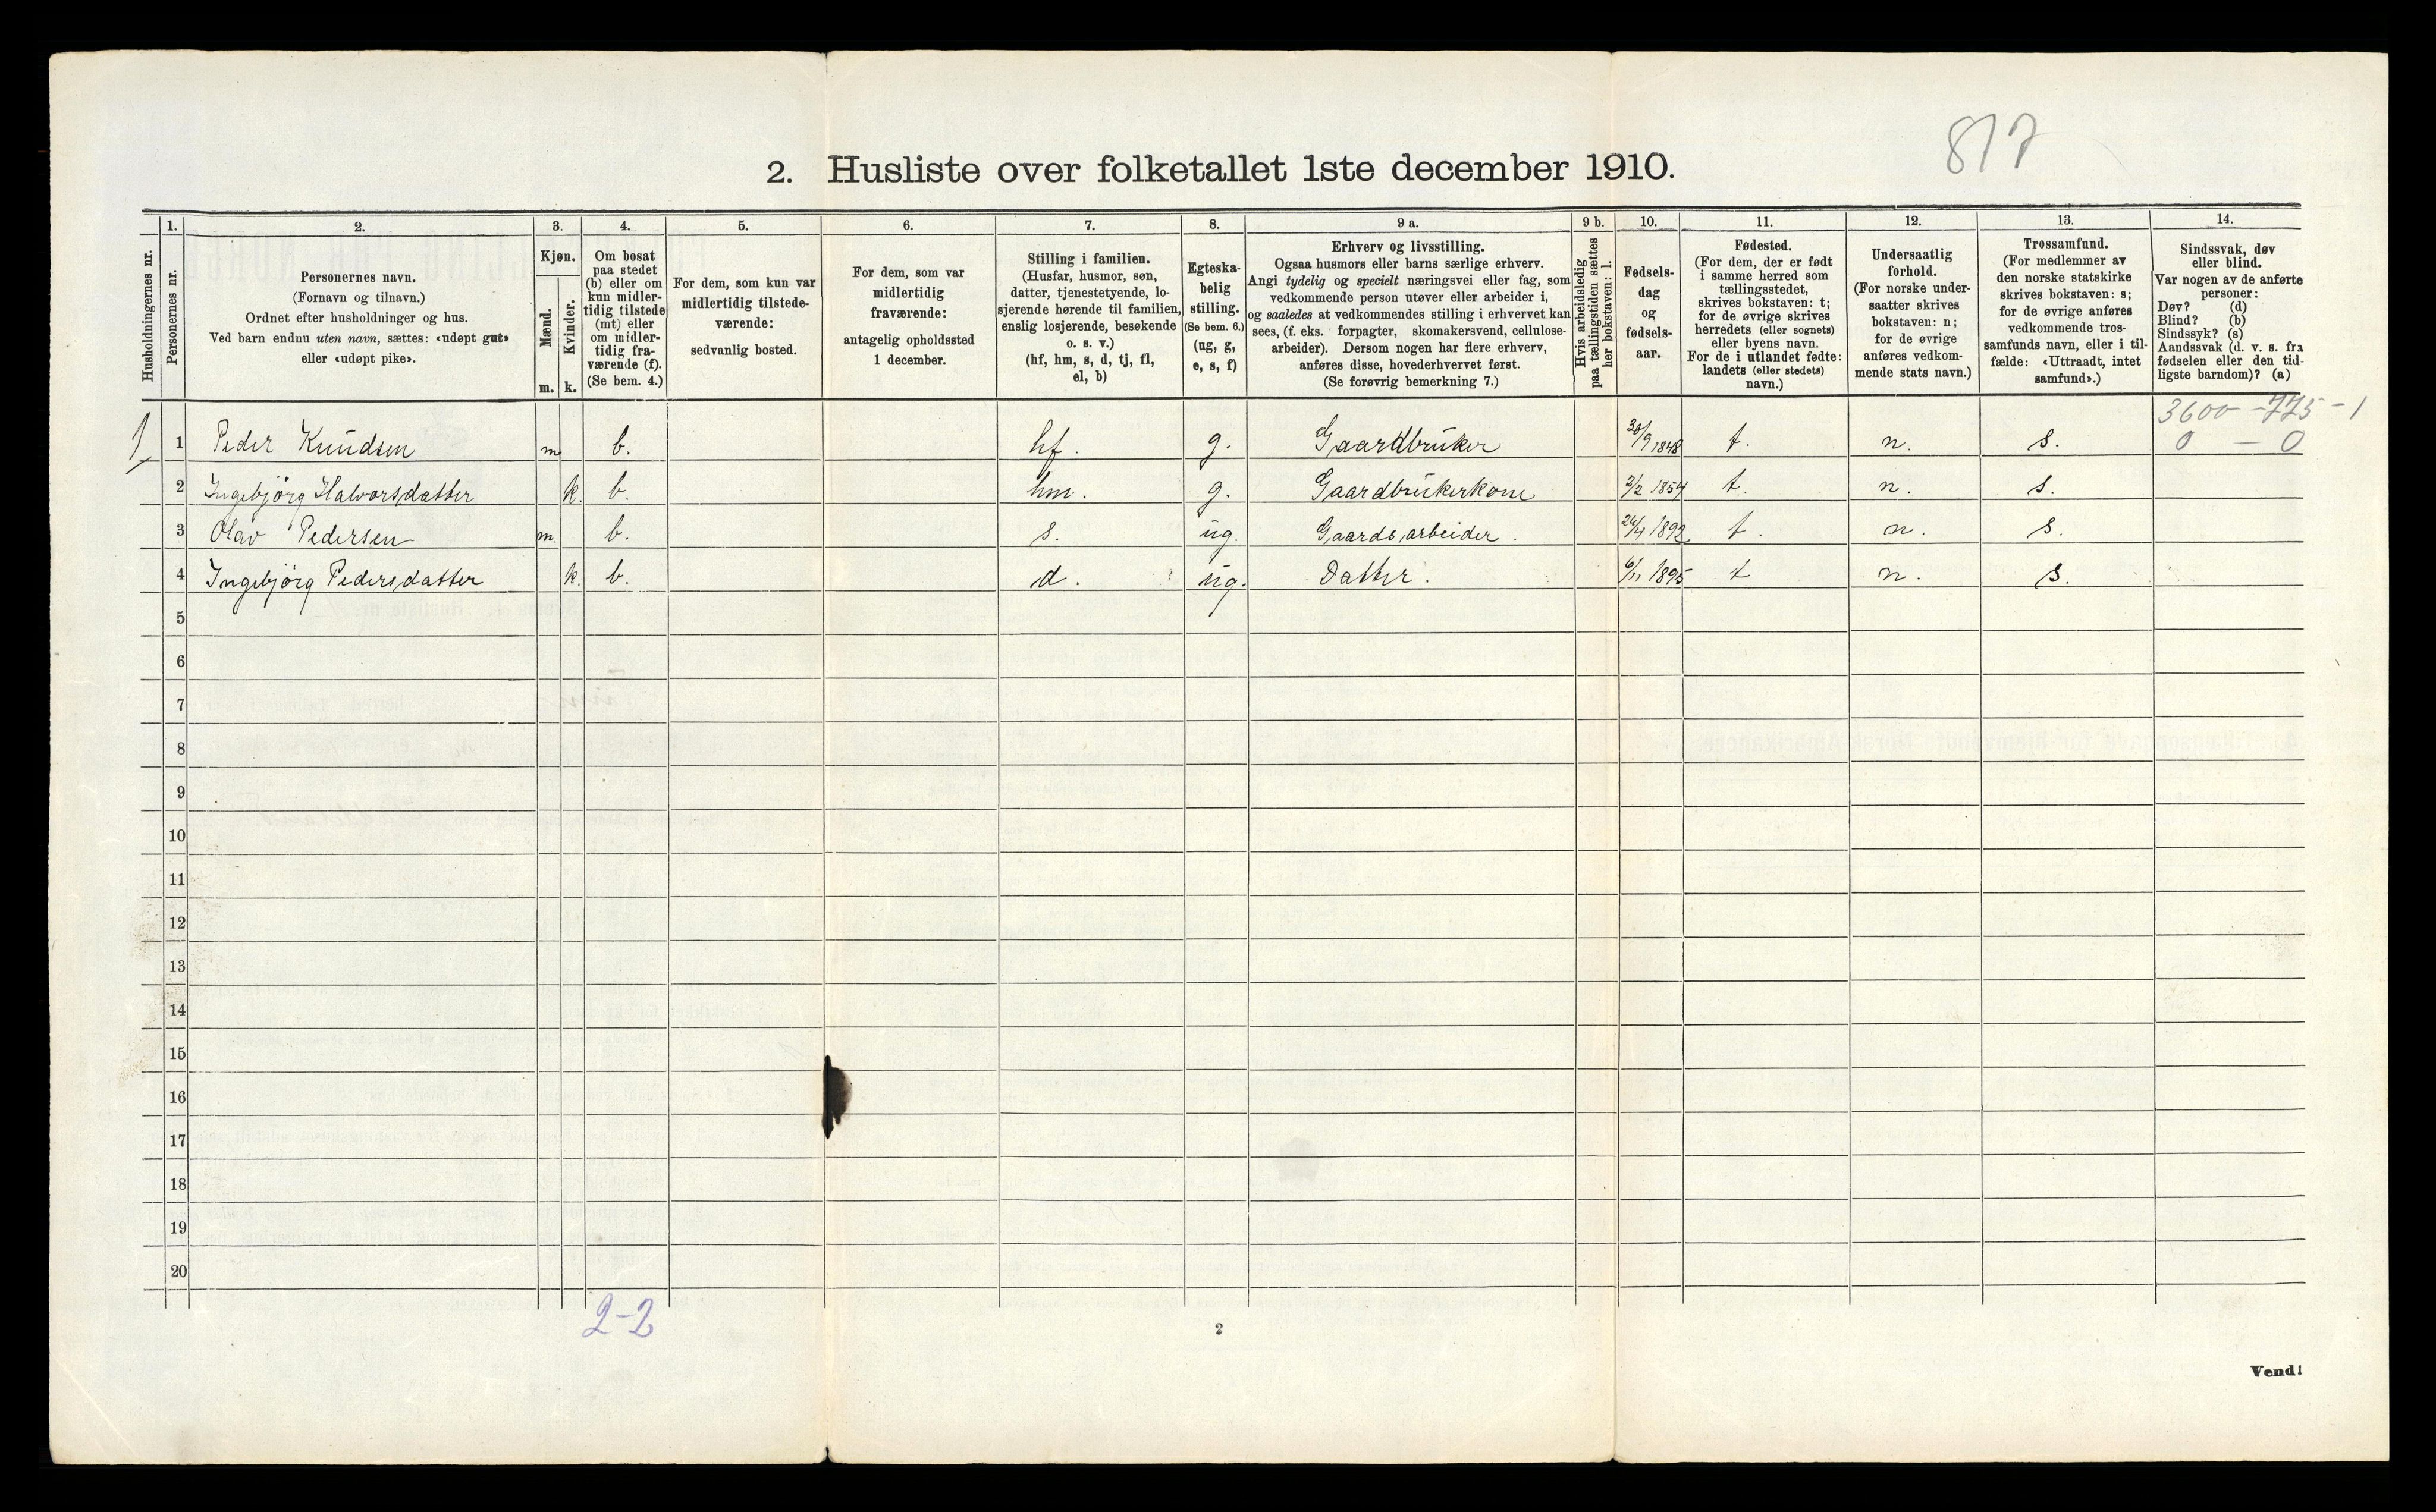 817
2. Husliste over folketallet 1ste december 1910.
Husholdningernes nr.
1.
Personernes nr.
2.
Personernes navn.
(Fornavn og tilnavn.)
Ordnet efter husholdninger og hus.
Ved barn endnu uten navn, sættes: «udøpt gut»
eller «udøpt pike».
3.
Kjøn.
Mænd.
Kvinder.
m. k.
4.
Om bosat
paa stedet
(b) eller om
kun midler-
tidig tilstede
(mt) eller
om midler-
tidig fra-
værende (f).
(Se bem. 4.)
5.
For dem, som kun var
midlertidig tilstede-
værende:
sedvanlig bosted.
6.
For dem, som var
midlertidig
fraværende:
antagelig opholdssted
1 december.
7.
Stilling i familien.
(Husfar, husmor, søn,
datter, tjenestetyende, lo-
sjerende hørende til familien,
enslig losjerende, besøkende
o. s. v.)
(hf, hm, s, d, tj, fl,
el, b)
8.
Egteska-
belig
stilling.
(Se bem. 6.)
(ug, g,
e, s, f)
9 a.
Erhverv og livsstilling.
Ogsaa husmors eller barns særlige erhverv.
Angi tydelig og specielt næringsvei eller fag, som
vedkommende person utøver eller arbeider i,
og saaledes at vedkommendes stilling i erhvervet kan
sees, (f. eks. forpagter, skomakersvend, cellulose-
arbeider). Dersom nogen har flere erhverv,
anføres disse, hovederhvervet først.
(Se forøvrig bemerkning 7.)
9 b.
Hvis arbeidsledig
paa tællingstiden sættes
her bokstaven: l.
10.
Fødsels-
dag
og
fødsels-
aar.
11.
Fødested.
(For dem, der er født
i samme herred som
tællingsstedet,
skrives bokstaven: t;
for de øvrige skrives
herredets (eller sognets)
eller byens navn.
For de i utlandet fødte:
landets (eller stedets)
navn.)
12.
Undersaatlig
forhold.
(For norske under-
saatter skrives
bokstaven: n;
for de øvrige
anføres vedkom-
mende stats navn.)
13.
Trossamfund.
(For medlemmer av
den norske statskirke
skrives bokstaven: s;
for de øvrige anføres
vedkommende tros-
samfunds navn, eller i til-
fælde: «Uttraadt, intet
samfund».)
14.
Sindssvak, døv
eller blind.
Var nogen av de anførte
personer:
Døv? (d)
Blind? (b)
Sindssyk? (s)
Aandssvak (d. v. s. fra
fødselen eller den tid-
ligste barndom)? (a)
3600 - 775 - 1
1 1 Peder Knudsen m b. hf. g. Gaardbruker 30/9 1848 t. n. s. 0 - 0
2 Ingebjörg Halvorsdatter k. b. hm. g. Gaardbrukerkone 2/2 1854 t. n. s.
3 Olav Pedersen m. b. s. ug. Gaardsarbeider. 24/4 1892 t. n. s.
4 Ingebjörg Pedersdatter k. b. d. ug. Datter. 6/11 1895 t n. s.
5
6
7
8
9
10
11
12
13
14
15
16
17
18
19
20
2-2
2
Vend!